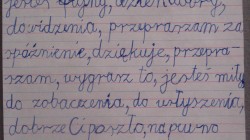 jesteś fajny, dzień dobry,
dowidzenia, przepraszam za
spóźnienie, dziękuje, przepra-
szam, wygrasz to, jesteś miły,
do zobaczenia, do usłyszenia,
dobrze Ci poszło, napewno